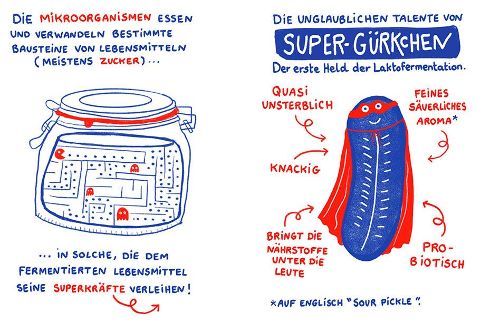 DIE MIKROORGANISMEN ESSEN
UND VERWANDELN BESTIMMTE
BAUSTEINE VON LEBENSMITTELN
(MEISTENS ZUCKER)...
... IN SOLCHE, DIE DEM
FERMENTIERTEN LEBENSMITTEL
SEINE SUPERKRÄFTE VERLEIHEN!
DIE UNGLAUBLICHEN TALENTE VON
SUPER-GÜRKCHEN
Der erste Held der Laktofermentation.
QUASI
UNSTERBLICH
FEINES
SÄUERLICHES
AROMA*
KNACKIG
BRINGT DIE
NÄHRSTOFFE
UNTER DIE
LEUTE
PRO-
BIOTISCH
*AUF ENGLISCH "SOUR PICKLE".